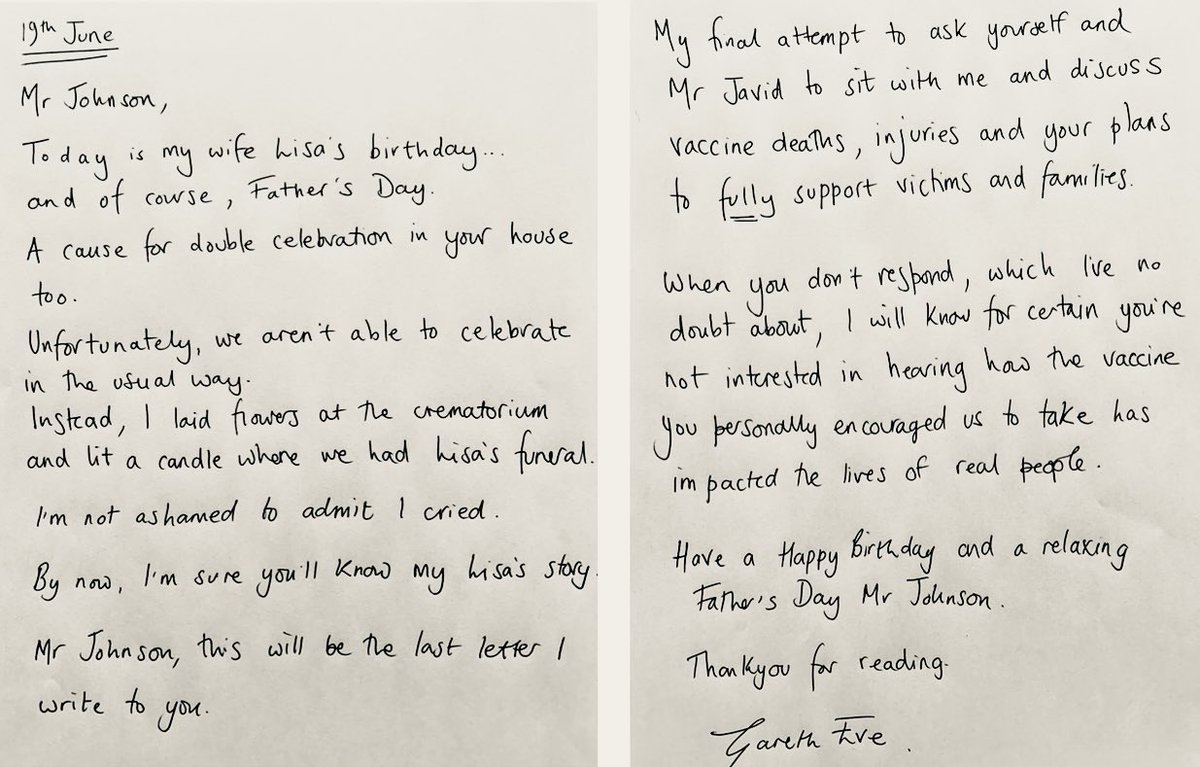 19th June
Mr Johnson,
Today is my wife Lisa's birthday...
and of course, Father's Day.
A cause for double celebration in your house
too.
Unfortunately, we aren't able to celebrate
in the usual way.
Instead, I laid flowers at the crematorium
and lit a candle where we had Lisa's funeral.
I'm not ashamed to admit I cried.
By now, I'm sure you'll know my Lisa's story.
Mr Johnson, this will be the last letter I
write to you.
My final attempt to ask yourself and
Mr Javid to sit with me and discuss
vaccine deaths, injuries and your plans
to fully support victims and families.
When you don't respond, which I've no
doubt about, I will know for certain you're
not interested in hearing how the vaccine
you personally encouraged us to take has
impacted the lives of real people.
Have a Happy Birthday and a relaxing
Father's Day Mr Johnson.
Thankyou for reading.
Gareth Eve.